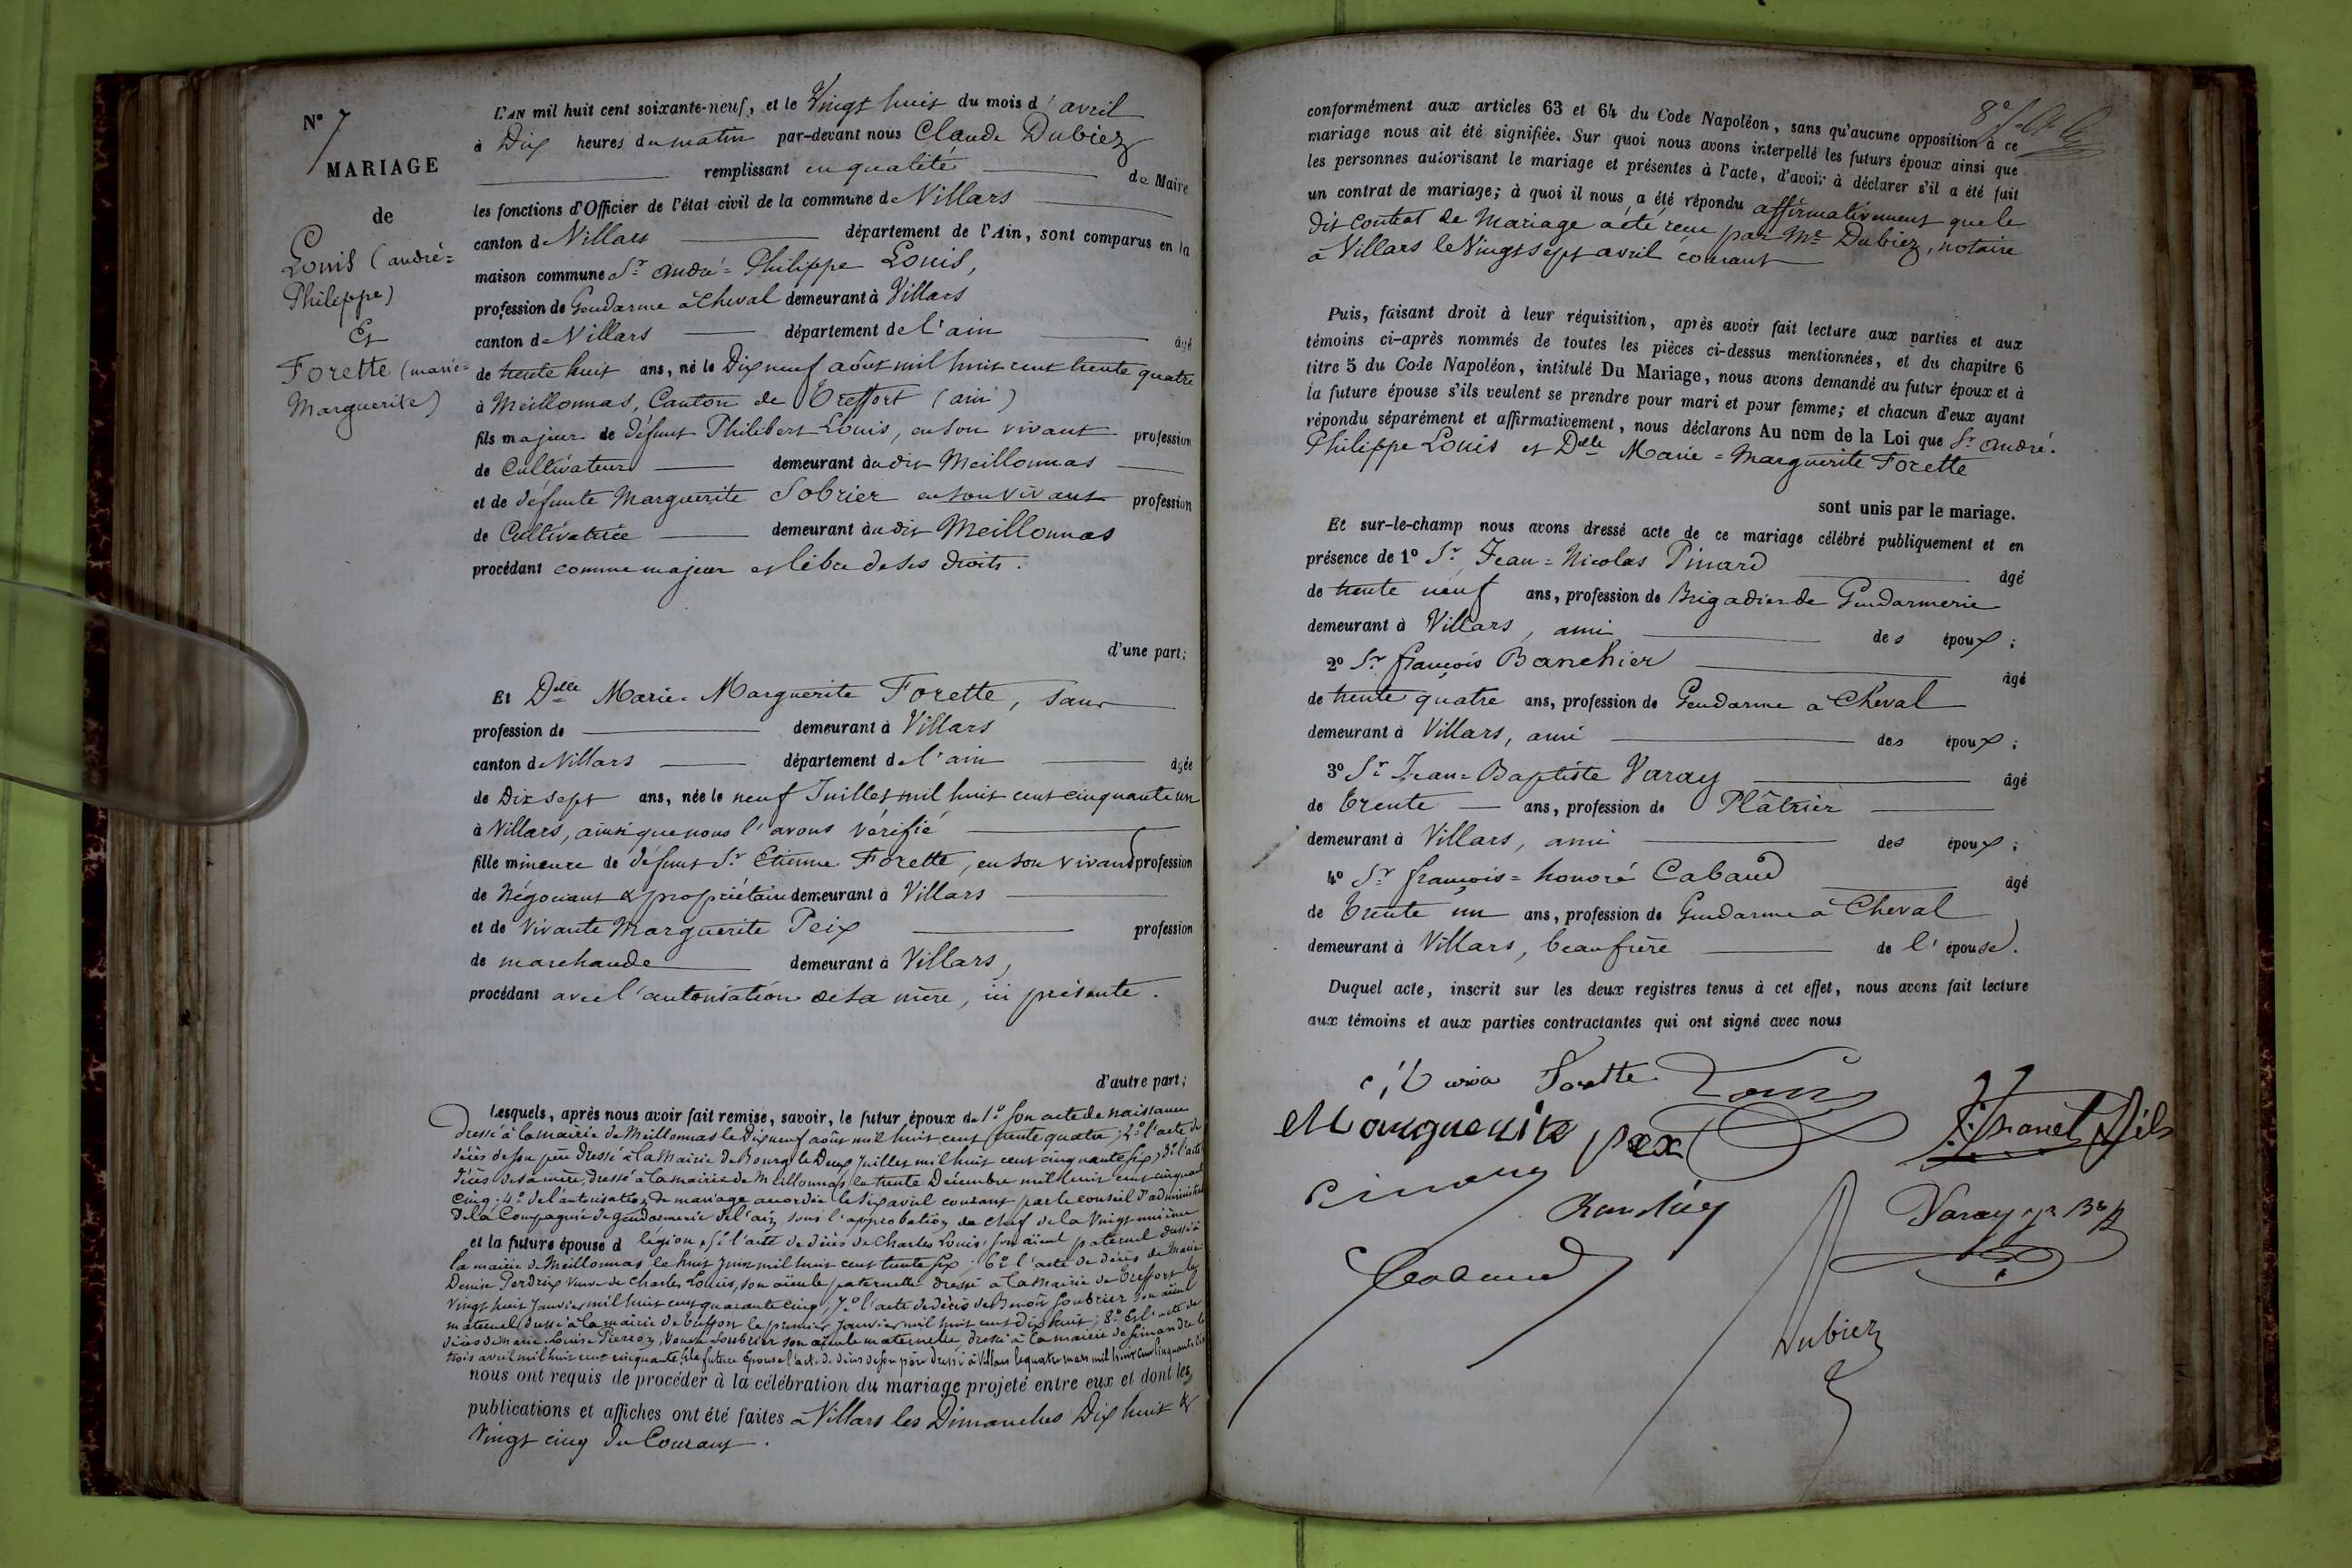 N° 7
MARIAGE
de
Louis (andré=
Philippe)
Et
Forette (marie=
Marguerite)
L'AN mil huit cent soixante-neuf, et le Vingt huit du mois d'avril
à Dix heures du matin par-devant nous Claude Dubiez
remplissant en qualité de Maire
les fonctions d'Officier de l'état civil de la commune de Villars
canton de Villars département de l'Ain, sont comparus en la
maison commune Sr andré=Philippe Louis,
profession de Gendarme à Cheval demeurant à Villars
canton de Villars département de l'ain âgé
de trente huit ans, né le Dix neuf août mil huit cent trente quatre
à Meillonnas, Canton de Treffort (ain)
fils majeur de défunt Philibert Louis, en son vivant profession
de Cultivateur demeurant audit Meillonnas
et de défunte Marguerite Sobrier en son vivant profession
de Cultivatrice demeurant audit Meillonnas
procédant comme majeur et libre de ses droits.
d'une part;
Et Delle Marie-Marguerite Forette, sans
profession de demeurant à Villars
canton de Villars département de l'ain âgée
de Dix sept ans, née le neuf Juillet mil huit cent cinquante un
à Villars, ainsi que nous l'avons vérifié
fille mineure de défunt Sr Etienne Forette, en son vivant profession
de Négociant & propriétaire demeurant à Villars
et de vivante Marguerite Peix profession
de marchande demeurant à Villars,
procédant avec l'autorisation de sa mère, ici présente.
d'autre part;
Lesquels, après nous avoir fait remise, savoir, le futur époux de 1° Son acte de naissance
dressé à la mairie de Meillonnas le Dix neuf août mil huit cent trente quatre; 2° l'acte de
décès de son père dressé à la Mairie de Bourg le Deux Juillet mil huit cent cinquante six; 3° l'acte
décès de sa mère, dressé à la mairie de Meillonnas le trente Décembre mil huit cent cinquante
cinq; 4° de l'autorisation de mariage accordée le six avril courant par le conseil d'administration
de la Compagnie de gendarmerie de l'ain sous l'approbation du chef de la Vingt unième
et la future épouse d légion, 5° l'acte de décès de Charles Louis, son aïeul paternel dressé à
la mairie de Meillonnas le huit Juin mil huit cent trente six; 6° l'acte de décès de Marie
Denise Perdrix veuve de Charles Louis, son aïeule paternelle dressé à la mairie de Treffort le
vingt huit Janvier mil huit cent quarante cinq; 7° l'acte de décès de Benoît Soubrier son aïeul
maternel dressé à la mairie de Treffort le premier Janvier mil huit cent dix huit; 8° Et l'acte de
décès de Marie Louise Pierron, Veuve Soubrier son aïeule maternelle, dressé à la mairie de Simandre le
trois avril mil huit cent cinquante; la future Epouse l'acte de décès de son père dressé à Villars le quatre mars mil huit cent cinquante
nous ont requis de procéder à la célébration du mariage projeté entre eux et dont les
publications et affiches ont été faites à Villars les Dimanches Dix huit &
Vingt cinq du Courant.
conformément aux articles 63 et 64 du Code Napoléon, sans qu'aucune opposition à ce
mariage nous ait été signifiée. Sur quoi nous avons interpellé les futurs époux ainsi que
les personnes autorisant le mariage et présentes à l'acte, d'avoir à déclarer s'il a été fait
un contrat de mariage; à quoi il nous a été répondu affirmativement que le
dit contrat de Mariage a été reçu par Me Dubiez, notaire
à Villars le Vingt sept avril courant
Puis, faisant droit à leur réquisition, après avoir fait lecture aux parties et aux
témoins ci-après nommés de toutes les pièces ci-dessus mentionnées, et du chapitre 6
titre 5 du Code Napoléon, intitulé Du Mariage, nous avons demandé au futur époux et à
la future épouse s'ils veulent se prendre pour mari et pour femme; et chacun d'eux ayant
répondu séparément et affirmativement, nous déclarons Au nom de la Loi que Sr André-
Philippe Louis et Delle Marie=Marguerite Forette
sont unis par le mariage.
Et sur-le-champ nous avons dressé acte de ce mariage célébré publiquement et en
présence de 1° Sr Jean=Nicolas Pinard âgé
de trente neuf ans, profession de Brigadier de Gendarmerie
demeurant à Villars, ami des époux;
2° Sr françois Banchier âgé
de trente quatre ans, profession de Gendarme à Cheval
demeurant à Villars, ami des époux;
3° Sr Jean=Baptiste Varay âgé
de trente ans, profession de Plâtrier
demeurant à Villars, ami des époux;
4° Sr françois=honoré Cabaud âgé
de trente un ans, profession de Gendarme à Cheval
demeurant à Villars, beaufrère de l'épouse.
Duquel acte, inscrit sur les deux registres tenus à cet effet, nous avons fait lecture
aux témoins et aux parties contractantes qui ont signé avec nous
Forette Louis
Marguerite pex
Varay
Cabaud
Dubiez